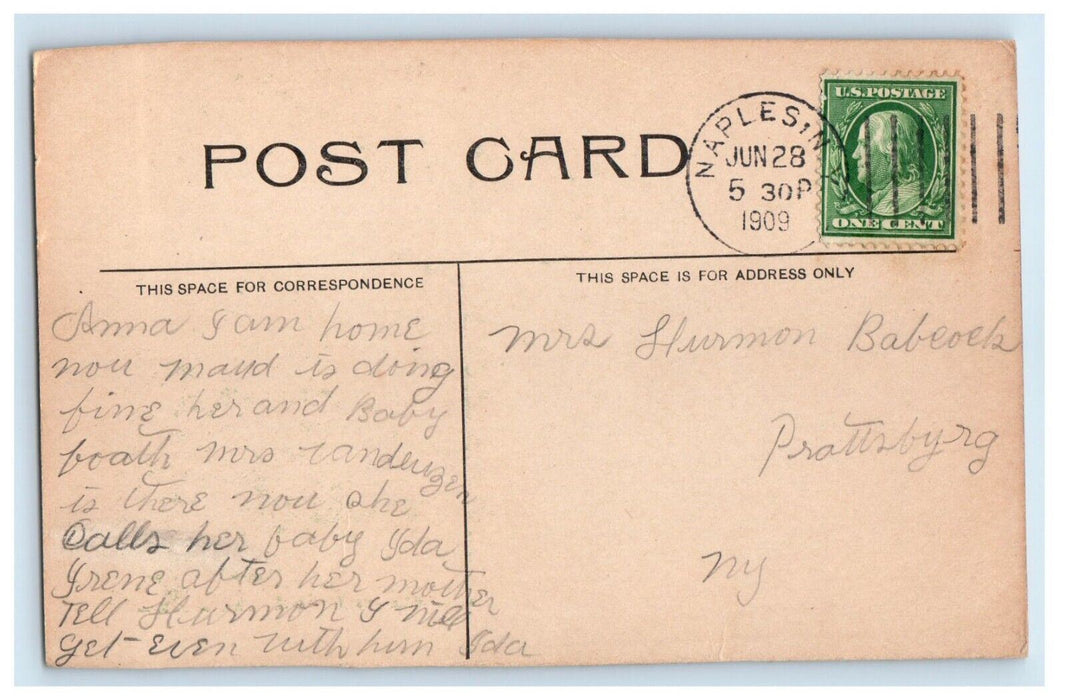 POST CARD
NAPLES, N.Y.
JUN 28
5 30P
1909
U.S. POSTAGE
ONE CENT
THIS SPACE FOR CORRESPONDENCE
THIS SPACE IS FOR ADDRESS ONLY
Anna I am home
now maud is doing
fine her and Baby
boath mrs vanderzen
is there now she
Calls her baby Ida
Irene after her mother
Tell Hurmon I will
get Even with him Ida
mrs Hurmon Babcock
Prattsbyrg
Ny